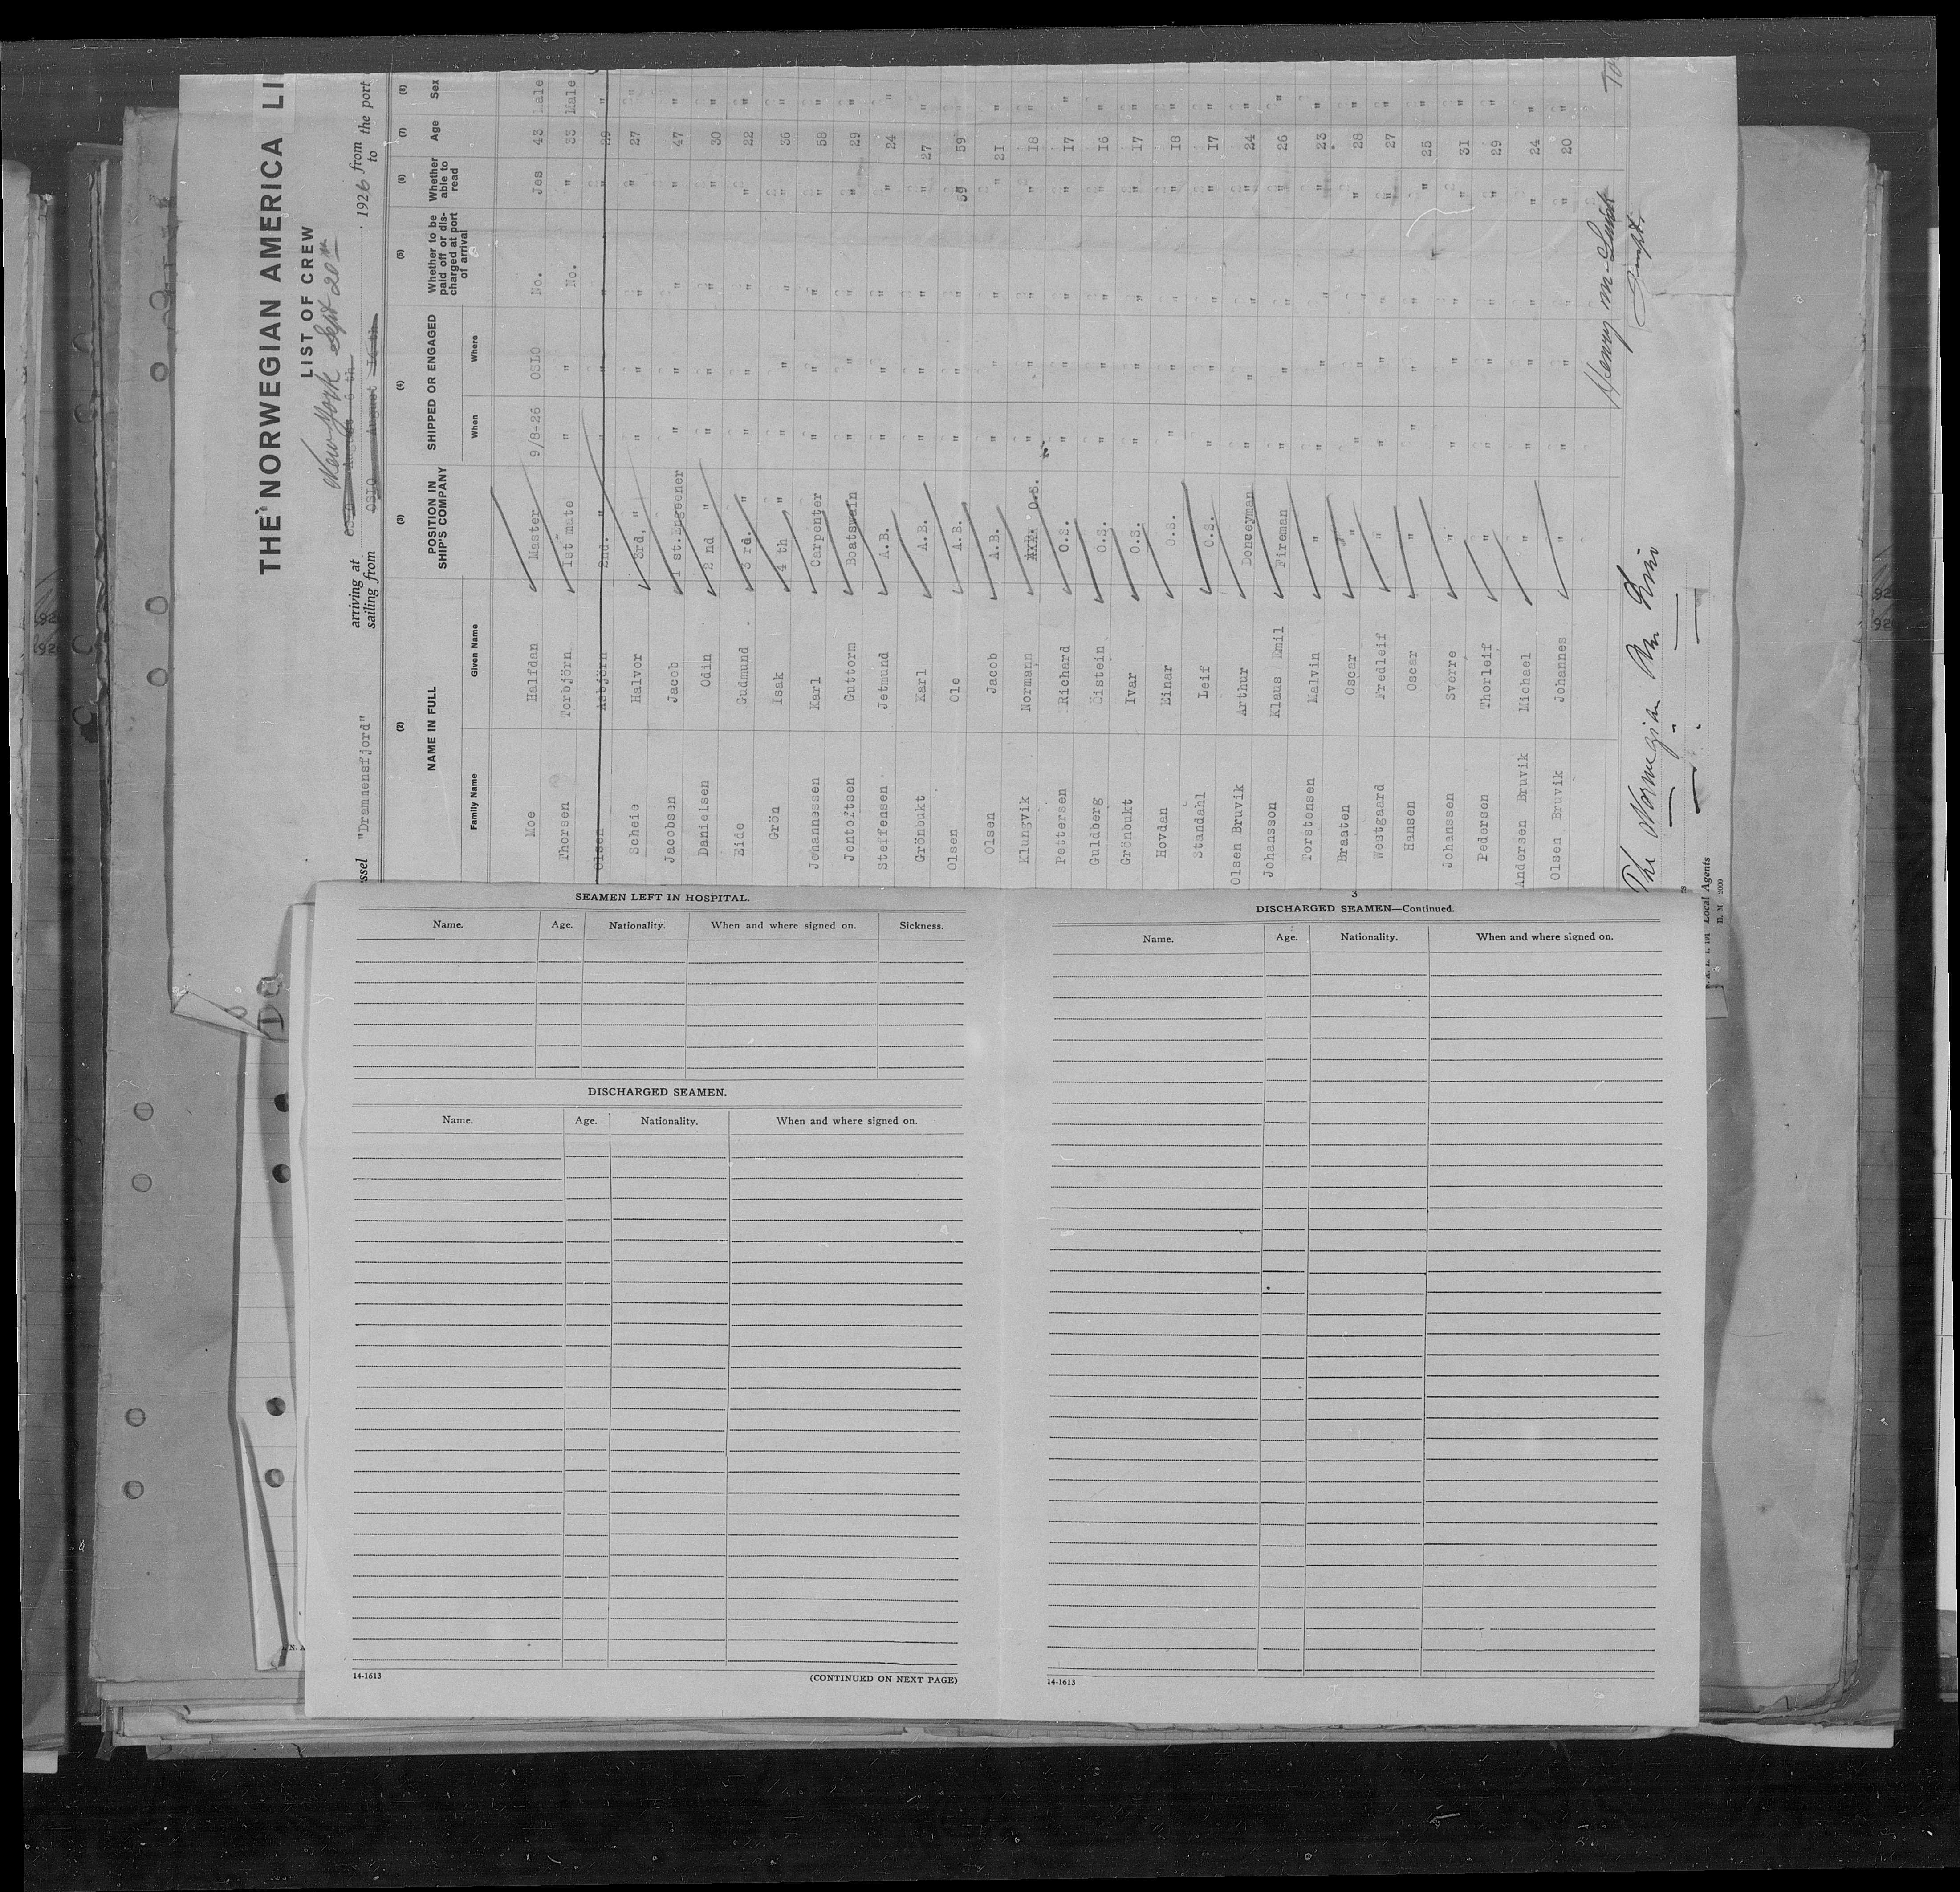 THE NORWEGIAN AMERICA LI
LIST OF CREW
New York Sept 20
ssel "Dramnensfjord" arriving at OSLO August 6 th 1926 from the port
sailing from OSLO August to
(2) (3) (4) (5) (6) (7) (8)
NAME IN FULL POSITION IN SHIP'S COMPANY SHIPPED OR ENGAGED Whether to be paid off or discharged at port of arrival Whether able to read Age Sex
Family Name Given Name When Where
Moe Halfdan Master 9/8-26 OSLO No. Jes 43 Male
Thorsen Torbjörn 1st mate " " No. " 33 Male
Olsen Asbjörn 2nd. " " " " " 29 "
Scheie Halvor 3rd, " " " " " 27 "
Jacobsen Jacob 1 st.Engeener " " " " 47 "
Danielsen Odin 2 nd " " " " " 30 "
Eide Gudmund 3 rd. " " " " " 22 "
Grön Isak 4 th " " " " " 36 "
Johannessen Karl Carpenter " " " " 58 "
Jentoftsen Guttorm Boatswain " " " " 29 "
Steffensen Jetmund A.B. " " " " 24 "
Grönbukt Karl A.B. " " " " 27 "
Olsen Ole A.B. " " " 59 "
Olsen Jacob A.B. " " " " 21 "
Klungvik Normann A.B. O.S. " " " " 18 "
Pettersen Richard O.S. " " " " 17 "
Guldberg Öistein O.S. " " " " 16 "
Grönbukt Ivar O.S. " " " " 17 "
Hovdan Einar O.S. " " " " 18 "
Standahl Leif O.S. " " " " 17 "
Olsen Bruvik Arthur Donceyman " " " " 24 "
Johansson Klaus Emil Fireman " " " " 26 "
Torstensen Malvin " " " " " 23 "
Braaten Oscar " " " " " 28 "
Westgaard Fredleif " " " " " 27 "
Hansen Oscar " " " " " 25 "
Johanssen Sverre " " " " " 31 "
Pedersen Thorleif " " " " " 29 "
Andersen Bruvik Michael " " " " " 24 "
Olsen Bruvik Johannes " " " " " 20 "
Henry M. Lund
The Norwegian Am Line
Local Agents
SEAMEN LEFT IN HOSPITAL.
Name. Age. Nationality. When and where signed on. Sickness.
DISCHARGED SEAMEN.
Name. Age. Nationality. When and where signed on.
14-1613 (CONTINUED ON NEXT PAGE)
3
DISCHARGED SEAMEN—Continued.
Name. Age. Nationality. When and where signed on.
14-1613